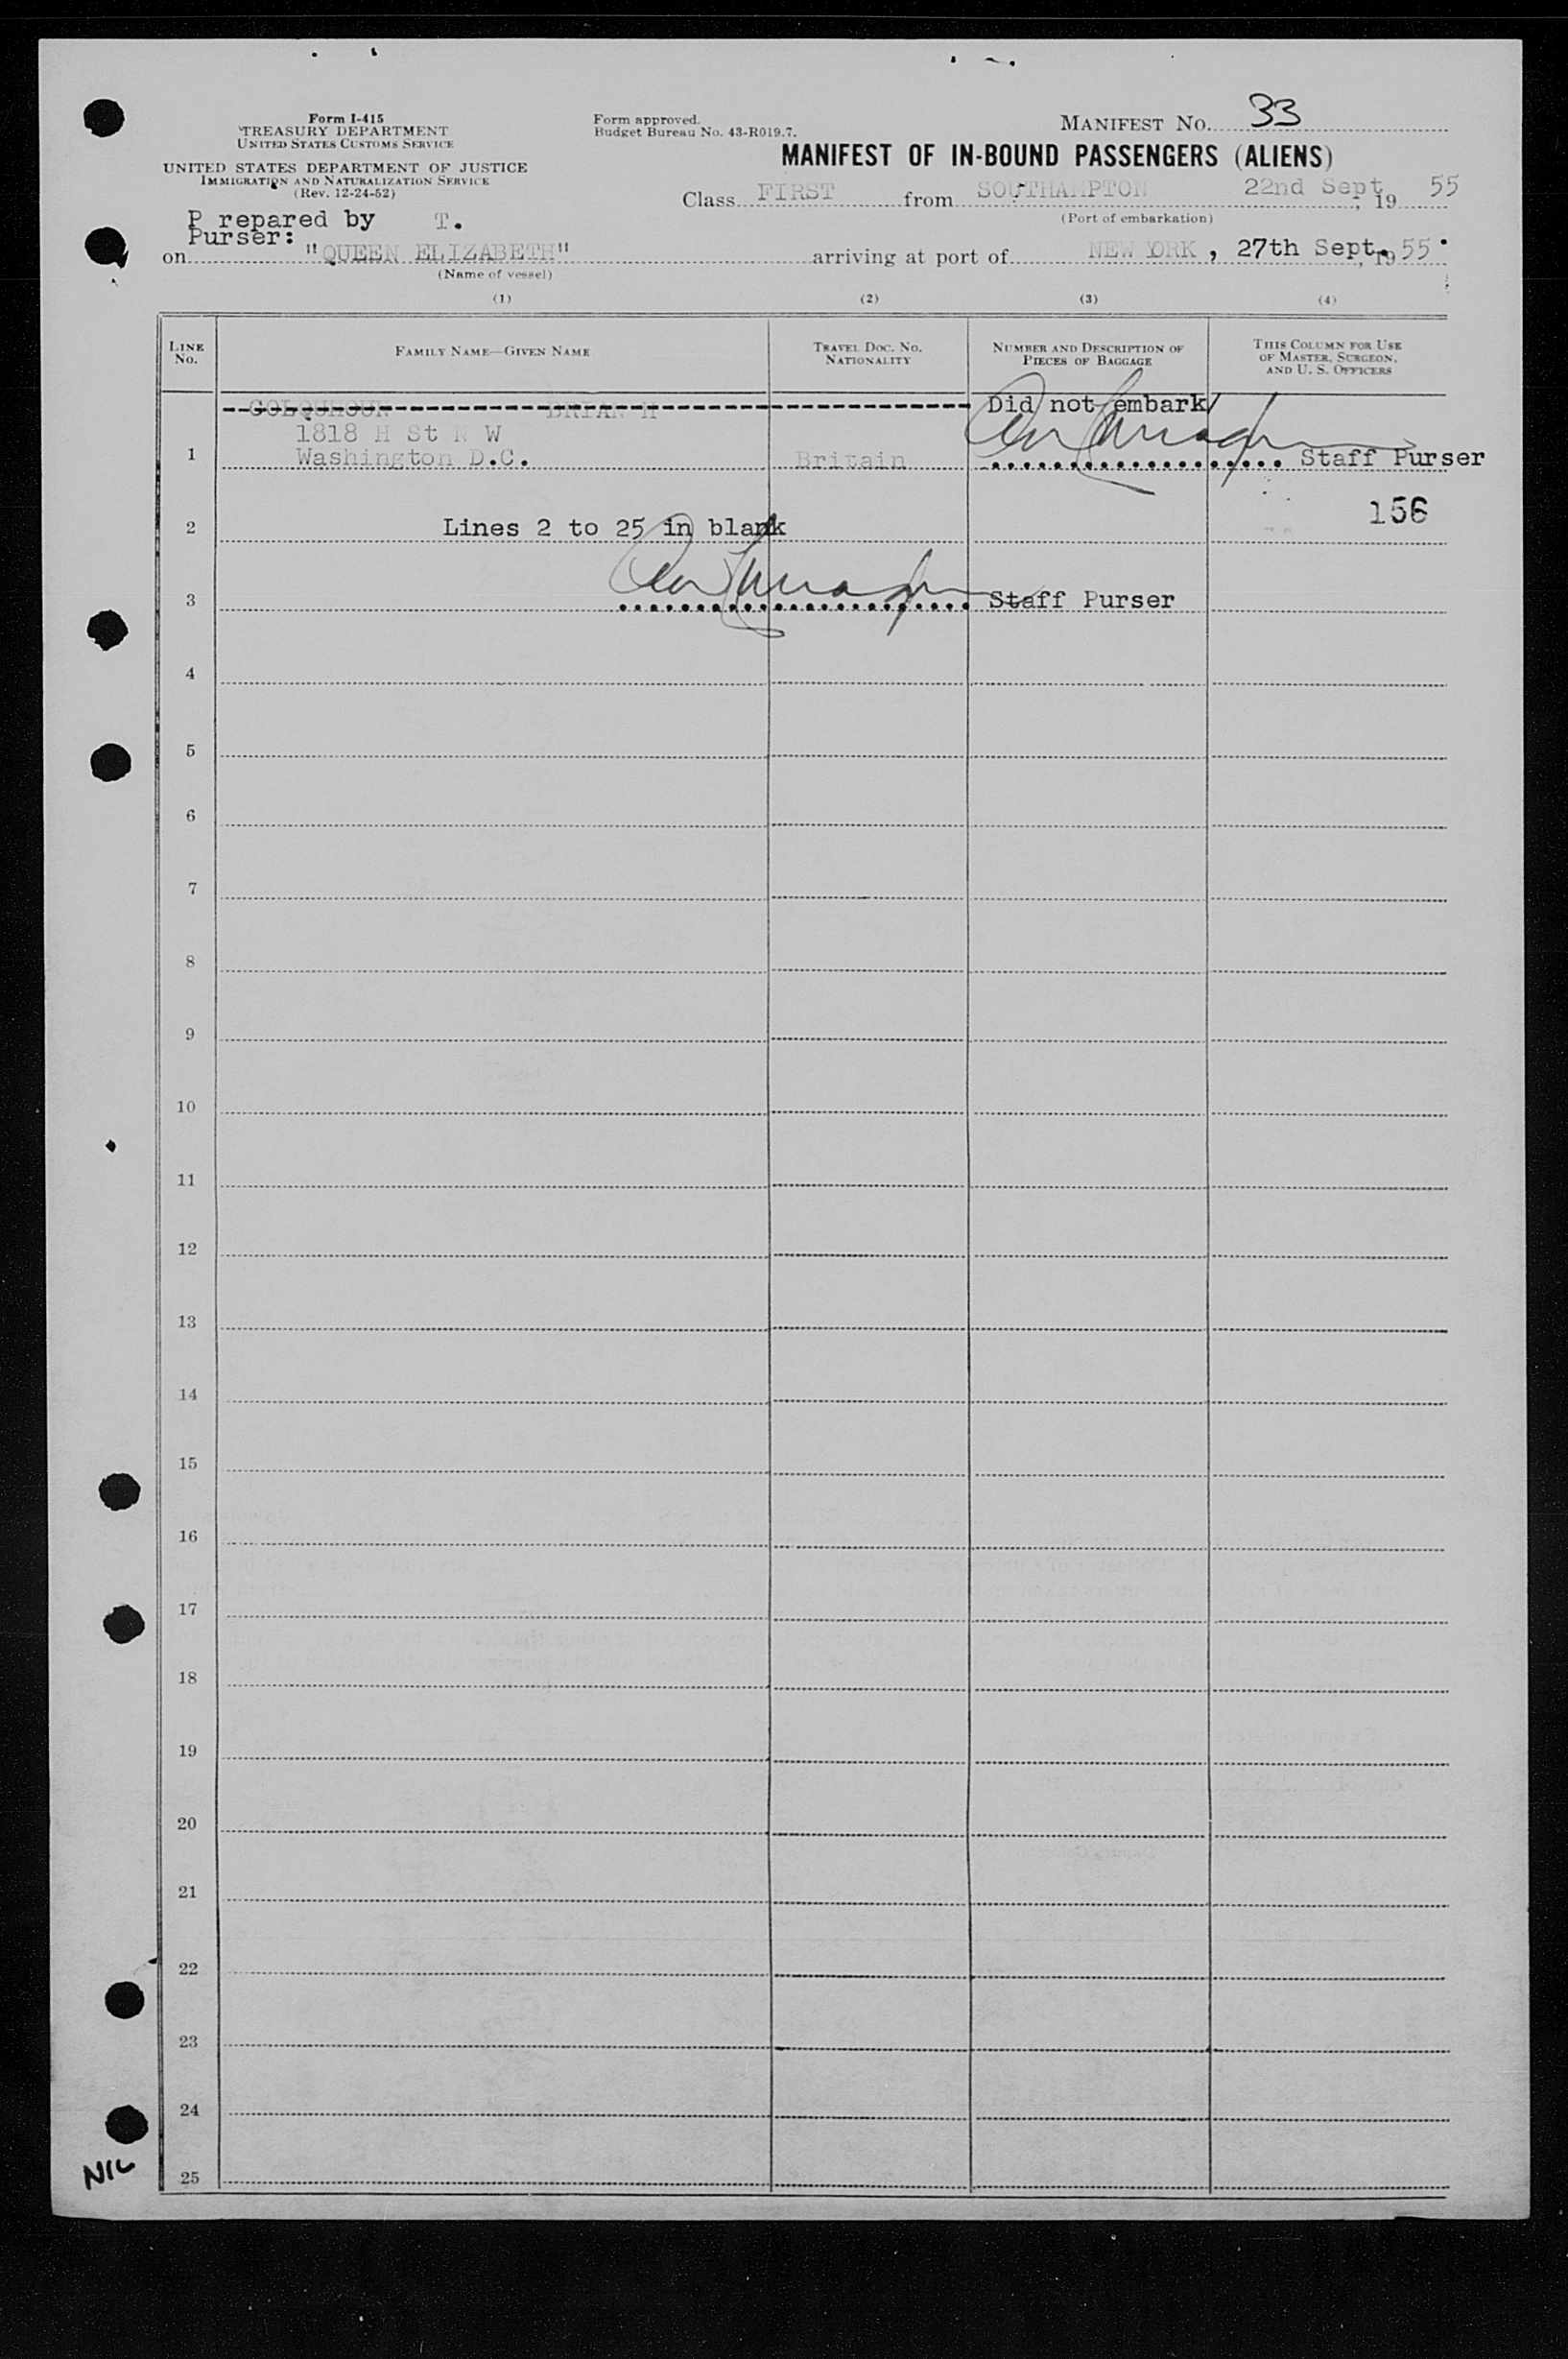 Form I-415
TREASURY DEPARTMENT
UNITED STATES CUSTOMS SERVICE
UNITED STATES DEPARTMENT OF JUSTICE
IMMIGRATION AND NATURALIZATION SERVICE
(Rev. 12-24-52)
Form approved.
Budget Bureau No. 43-R019.7.
MANIFEST NO. 33
MANIFEST OF IN-BOUND PASSENGERS (ALIENS)
Class FIRST from SOUTHAMPTON 22nd Sept, 19 55
(Port of embarkation)
P repared by T.
Purser:
on "QUEEN ELIZABETH" arriving at port of NEW YORK, 27th Sept. 19 55.
(Name of vessel)
(1) (2) (3) (4)
LINE No.
FAMILY NAME—GIVEN NAME
TRAVEL DOC. NO. NATIONALITY
NUMBER AND DESCRIPTION OF PIECES OF BAGGAGE
THIS COLUMN FOR USE OF MASTER, SURGEON, AND U. S. OFFICERS
COLQUHOUN BRIAN H Did not embark
1818 H St N W
1 Washington D.C. Britain Staff Purser
156
2 Lines 2 to 25 in blank
3 Staff Purser
4
5
6
7
8
9
10
11
12
13
14
15
16
17
18
19
20
21
22
23
24
25
NIL